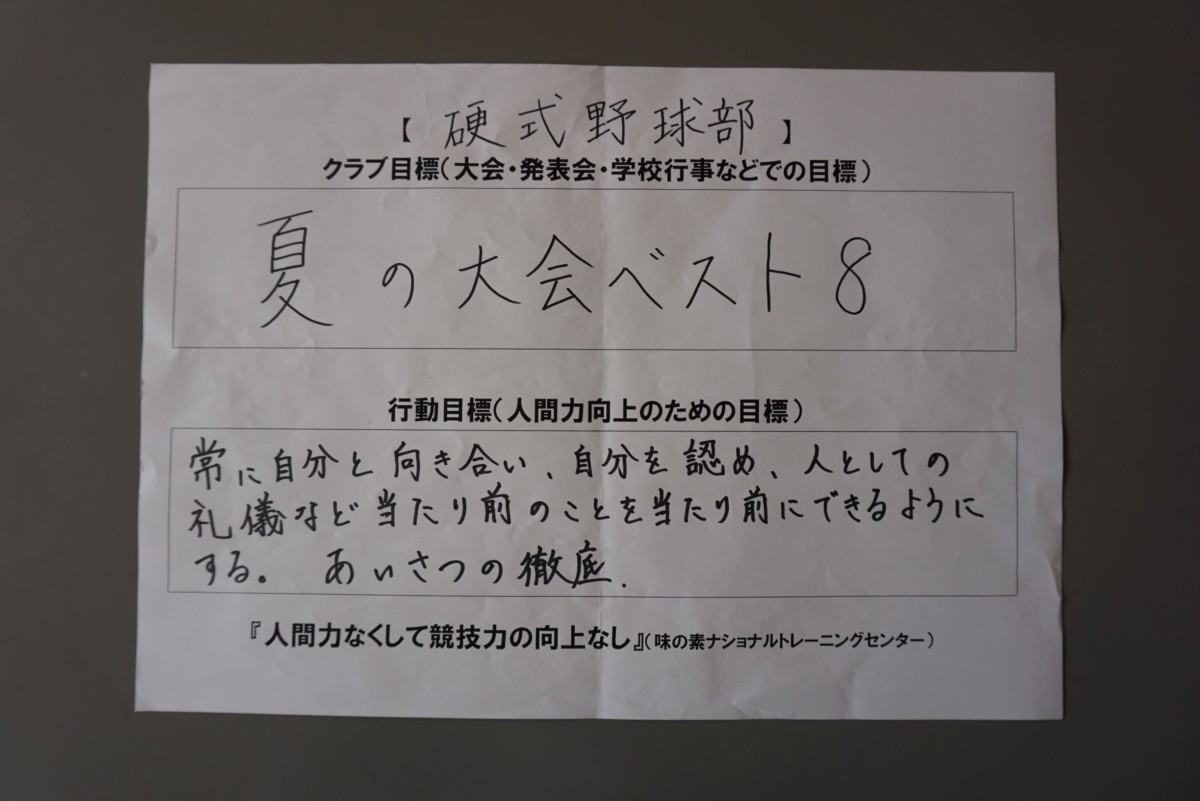 【 硬式野球部 】
クラブ目標(大会・発表会・学校行事などでの目標)
夏の大会ベスト8
行動目標(人間力向上のための目標)
常に自分と向き合い、自分を認め、人としての
礼儀など当たり前のことを当たり前にできるように
する。 あいさつの徹底.
『人間力なくして競技力の向上なし』(味の素ナショナルトレーニングセンター)